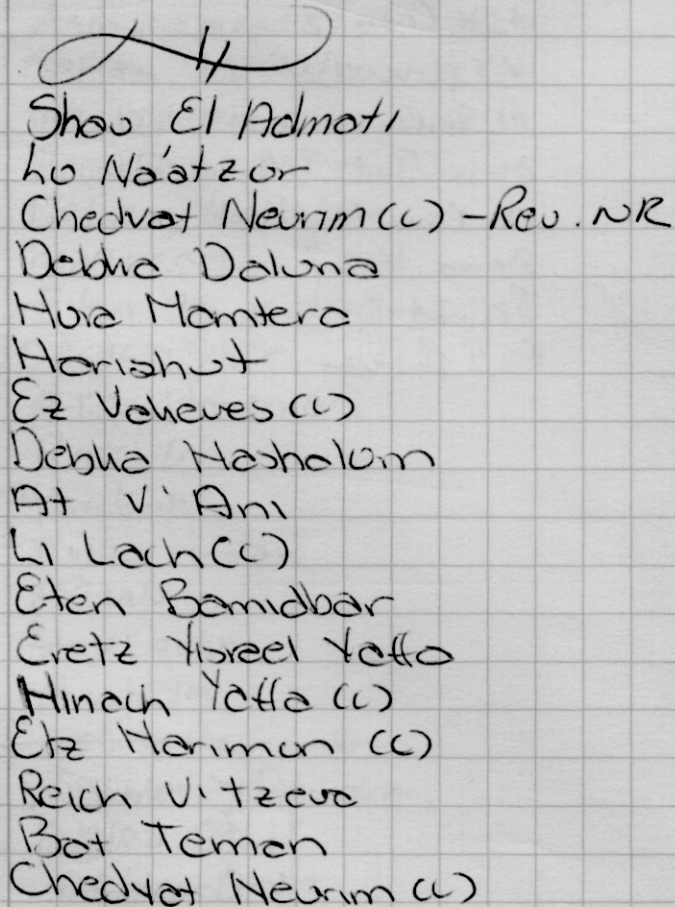 Shav El Admati
Lo Na'atzor
Chedvat Neurim (C) - Rev. NR
Debka Daluna
Hora Mamtera
Harishut
Ez Vakeves (C)
Debka Hashalom
At V' Ani
Li Lach (C)
Eten Bamidbar
Eretz Yisrael Yaffa
Hinach Yaffa (C)
Etz Harimon (C)
Reich V'tzeva
Bat Teman
Chedvat Neurim (C)